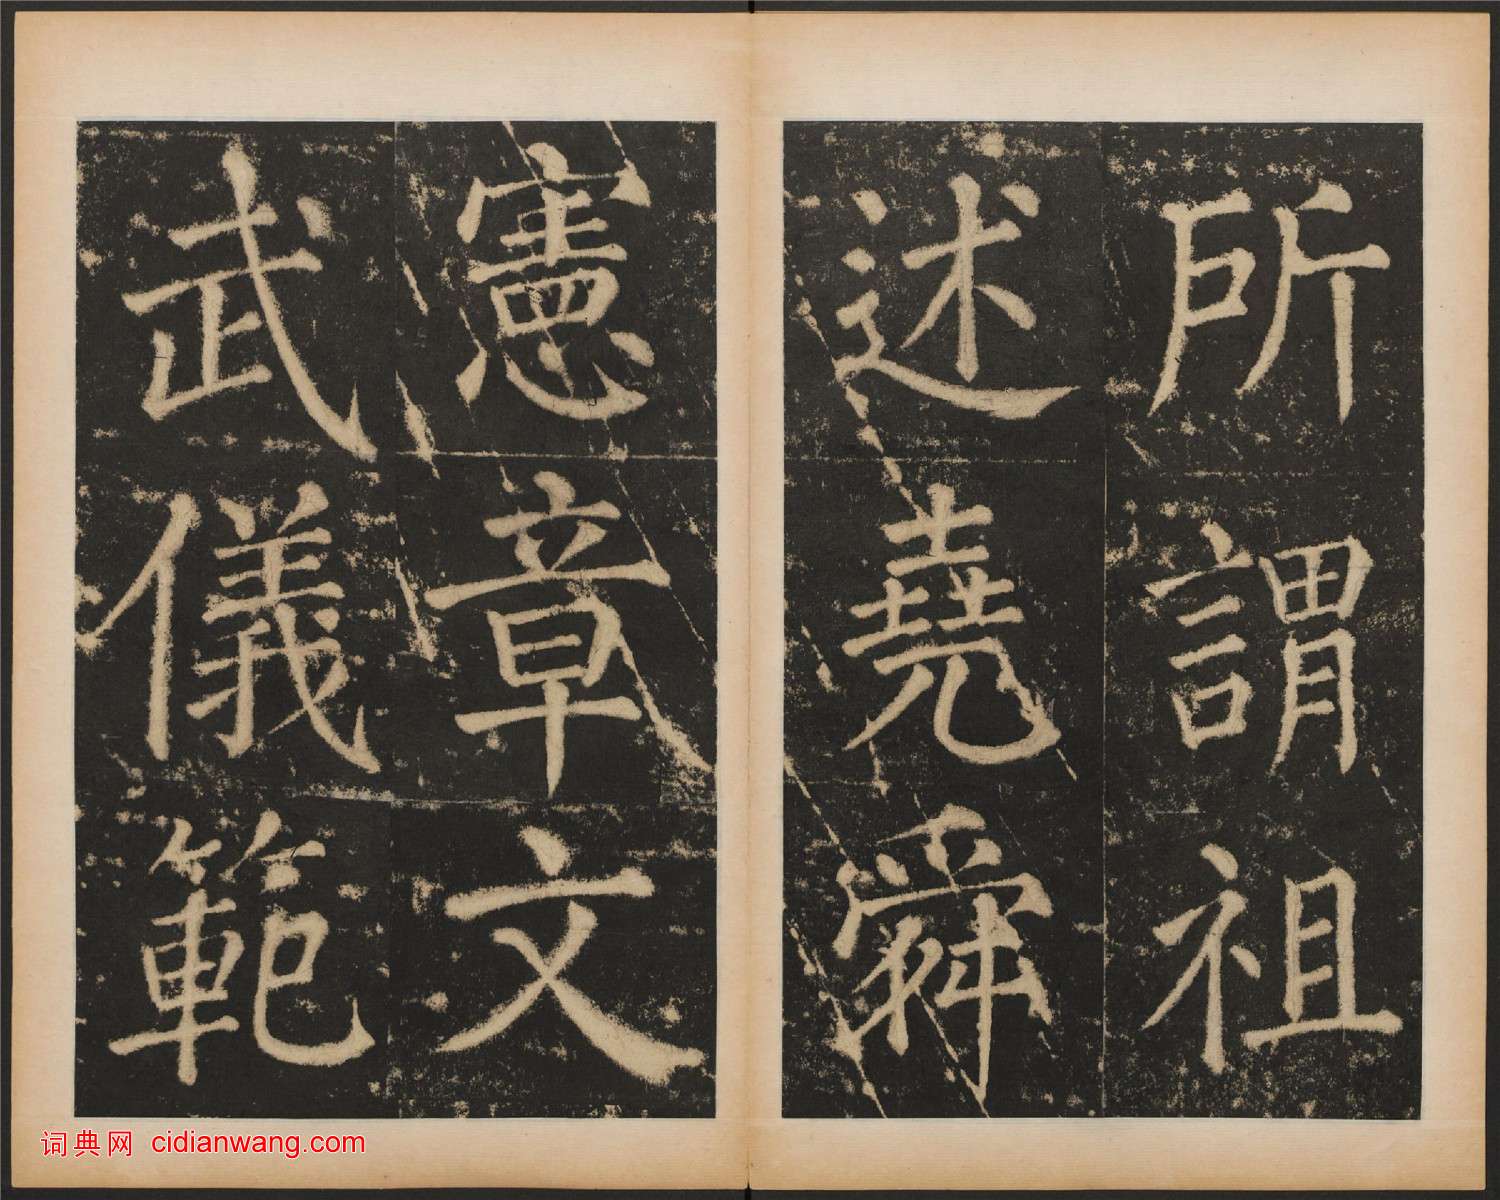 所謂祖
述堯舜
憲章文
武儀範
词典网 cidianwang.com